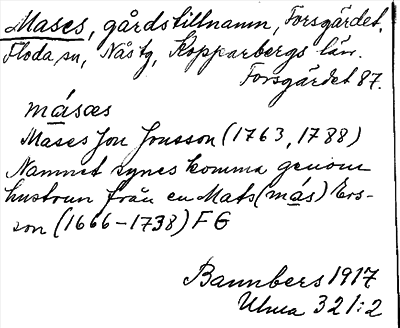 Mases, gårdstillnamn, Forsgärdet,
Floda sn, Nås tg, Kopparbergs län.
Forsgärdet 87.
másæs
Mases Jon Jonsson (1763, 1788)
Namnet synes komma genom
hustrun från en Mats (más) Ers-
son (1666-1738) FG
Bannbers 1917
Ulma 321:2